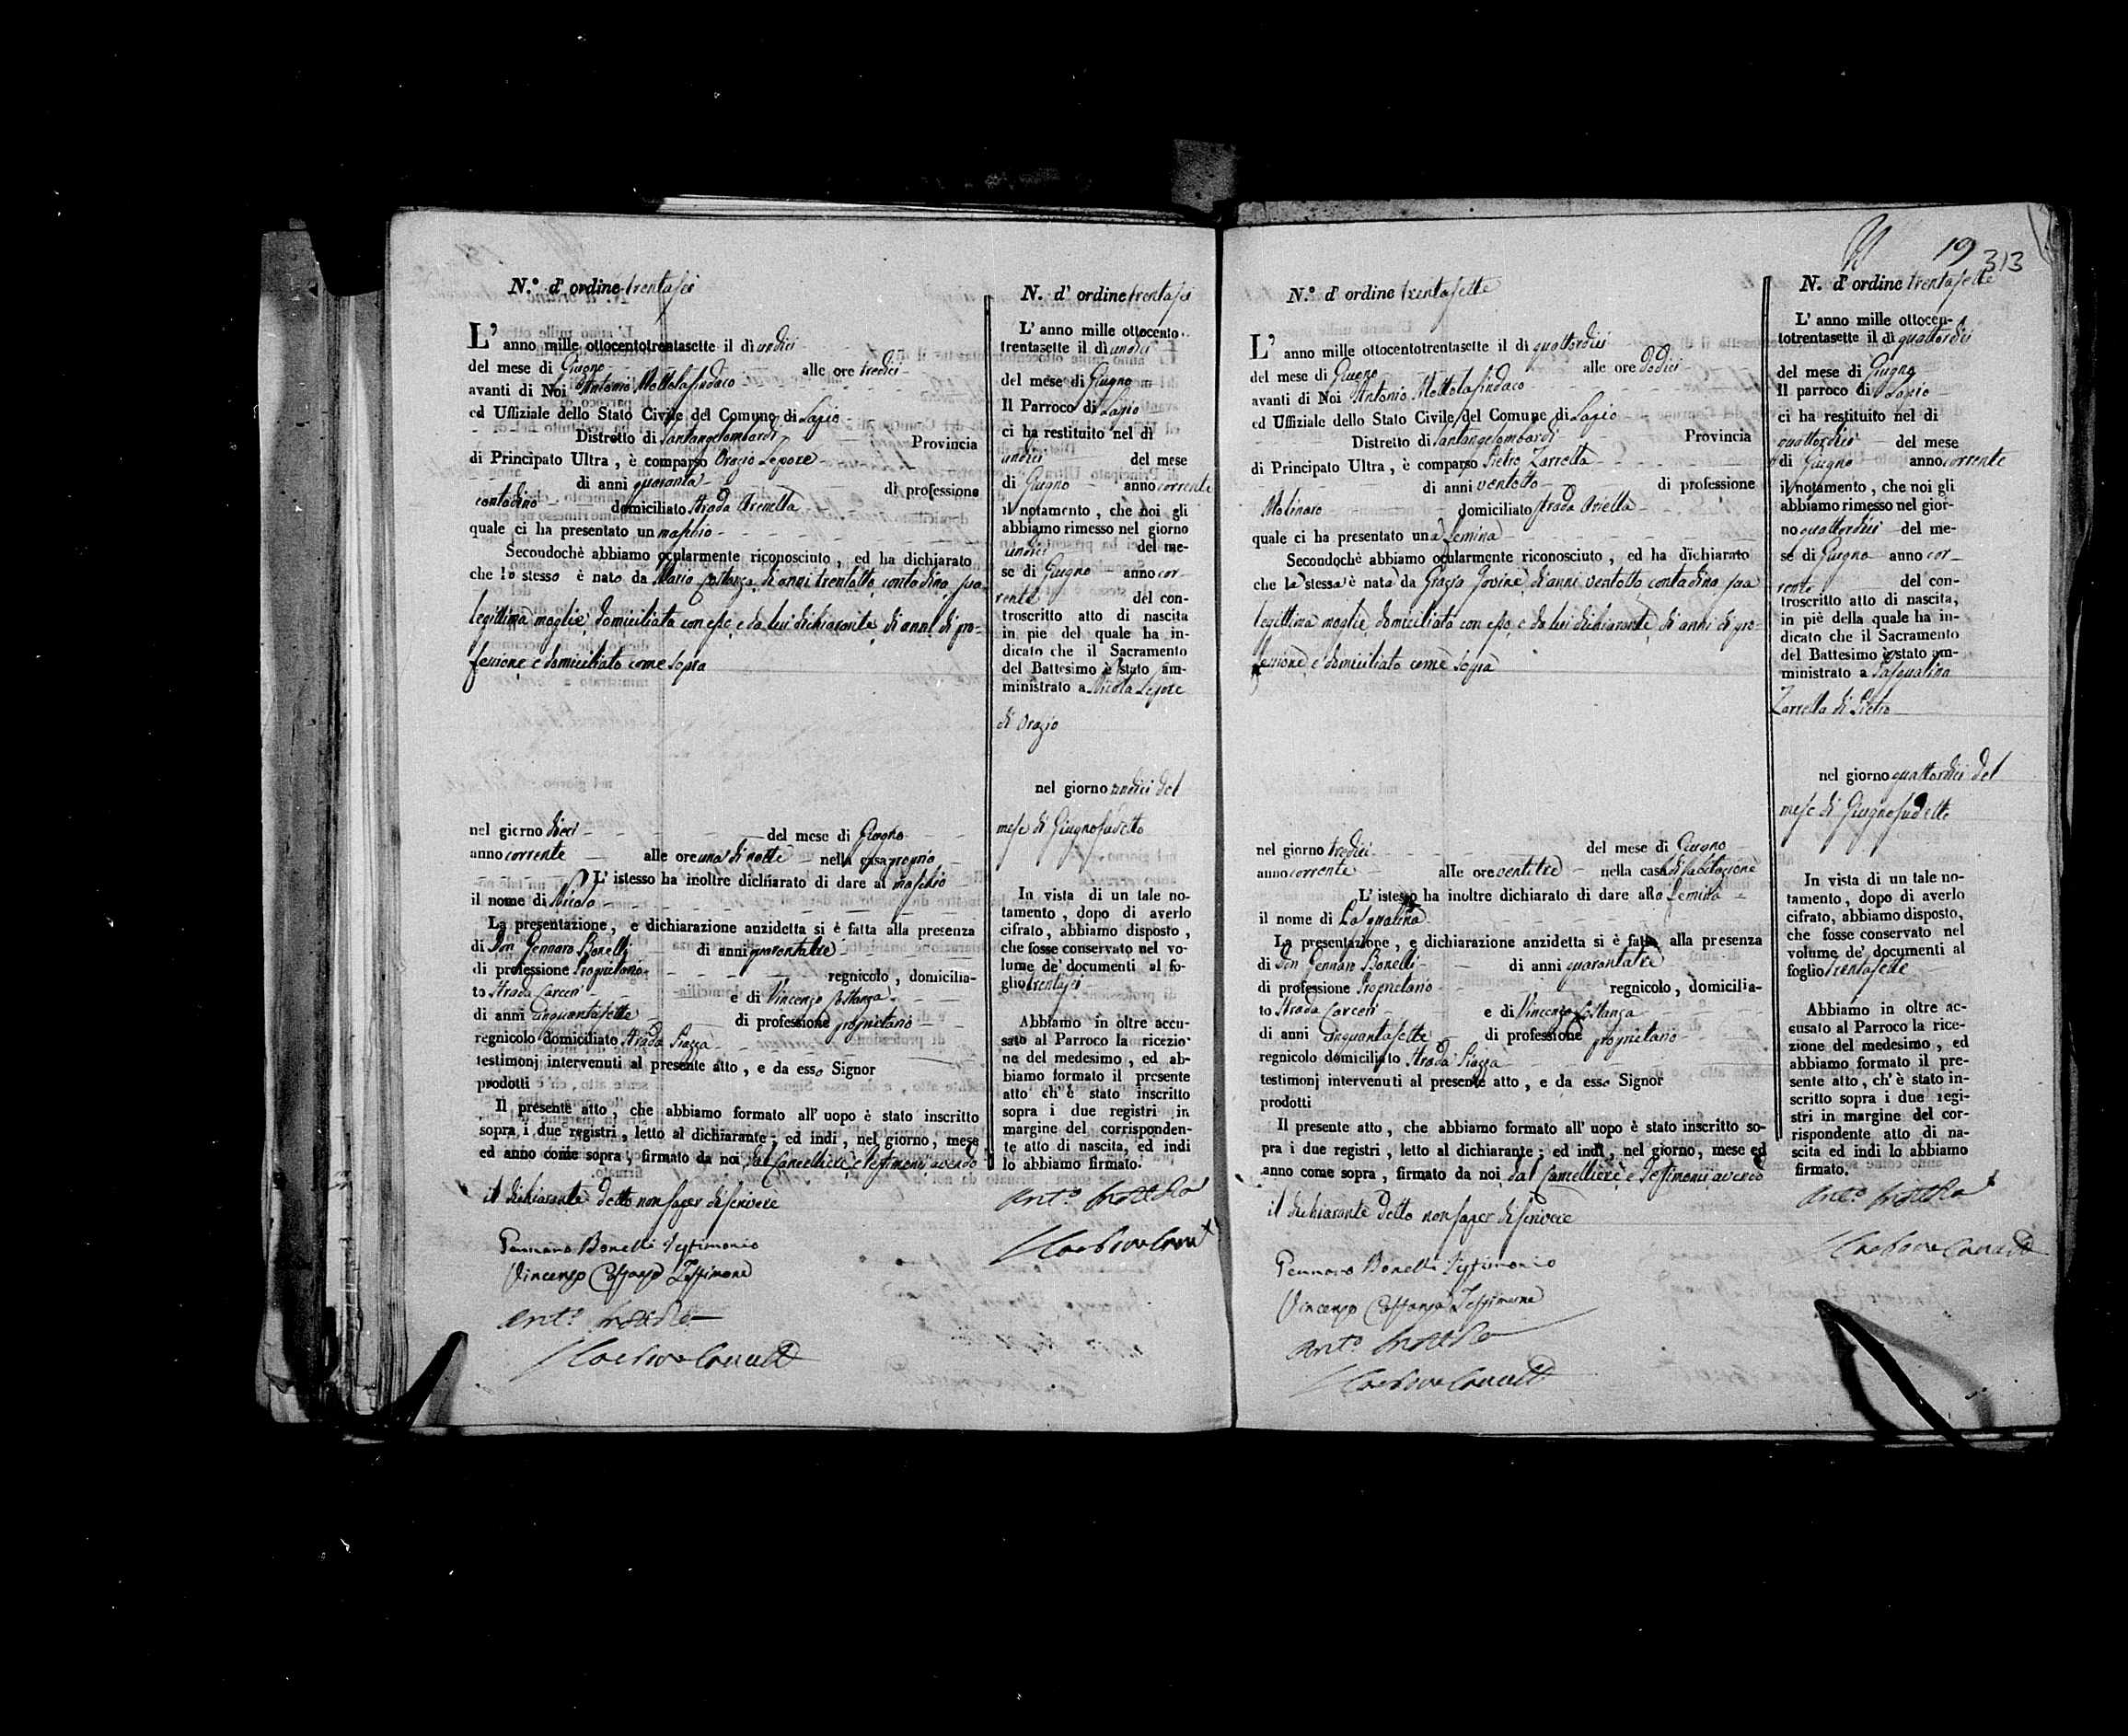 N.º d' ordine trentasei
L' anno mille ottocentotrentasette il dì undici
del mese di Giugno alle ore tredici
avanti di Noi Antonio Mottola sindaco
ed Uffiziale dello Stato Civile del Comune di Lapio
Distretto di Santangelombardi Provincia
di Principato Ultra , è comparso Orazio Lepore
di anni quaranta di professione
contadino domiciliato Strada Arenella
quale ci ha presentato un maschio
Secondochè abbiamo ocularmente riconosciuto , ed ha dichiarato
che lo stesso è nato da Maria Costanza di anni trentotto contadina sua
legittima moglie domiciliata con esso, e da lui dichiarante di anni di pro-
fessione e domiciliato come sopra
nel giorno dieci del mese di Giugno
anno corrente alle ore una di notte nella casa propria
L' istesso ha inoltre dichiarato di dare al maschio
il nome di Nicola
La presentazione , e dichiarazione anzidetta si è fatta alla presenza
di Don Gennaro Bonelli di anni quarantatre
di professione Proprietario regnicolo , domicilia-
to Strada Carceri e di Vincenzo Costanza
di anni cinquantasette di professione proprietario
regnicolo domiciliato Strada Piazza
testimonj intervenuti al presente atto , e da esso Signor
prodotti
Il presente atto , che abbiamo formato all' uopo è stato inscritto
sopra i due registri , letto al dichiarante ; ed indi , nel giorno , mese
ed anno come sopra , firmato da noi dal Cancelliere e Testimoni avendo
il dichiarante detto non saper di scrivere
Gennaro Bonelli Testimonio
Vincenzo Costanza Testimone
Ant.º Mottola
N. d' ordine trentasei
L' anno mille ottocento-
trentasette il dì undici
del mese di Giugno
Il Parroco di Lapio
ci ha restituito nel dì
undici del mese
di Giugno anno corrente
il notamento , che noi gli
abbiamo rimesso nel giorno
undici del me-
se di Giugno anno cor-
rente del con-
troscritto atto di nascita
in piè del quale ha in-
dicato che il Sacramento
del Battesimo è stato am-
ministrato a Nicola Lepore
di Orazio
nel giorno undici del
mese di Giugno sudetto
In vista di un tale no-
tamento , dopo di averlo
cifrato , abbiamo disposto ,
che fosse conservato nel vo-
lume de' documenti al fo-
glio trentasei
Abbiamo in oltre accu-
sato al Parroco la ricezio-
ne del medesimo , ed ab-
biamo formato il presente
atto ch' è stato inscritto
sopra i due registri in
margine del corrisponden-
te atto di nascita, ed indi
lo abbiamo firmato.
Ant.º Mottola
19
313
N.º d' ordine trentasette
L' anno mille ottocentotrentasette il dì quattordici
del mese di Giugno alle ore dodici
avanti di Noi Antonio Mottola sindaco
ed Uffiziale dello Stato Civile del Comune di Lapio
Distretto di Santangelombardi Provincia
di Principato Ultra , è comparso Pietro Zarrella
di anni ventotto di professione
Molinaro domiciliato Strada Ariella
quale ci ha presentato una femina
Secondochè abbiamo ocularmente riconosciuto , ed ha dichiarato
che la stessa è nata da Grazia Iovine di anni ventotto contadina sua
legittima moglie domiciliata con esso, e da lui dichiarante di anni di pro-
fessione e domiciliato come sopra
nel giorno tredici del mese di Giugno
anno corrente alle ore ventitre nella casa di sabitazione
L' istesso ha inoltre dichiarato di dare alla femina
il nome di Pasqualina
La presentazione , e dichiarazione anzidetta si è fatta alla presenza
di Don Gennaro Bonelli di anni quarantatre
di professione Proprietario regnicolo , domicilia-
to Strada Carceri e di Vincenzo Costanza
di anni cinquantasette di professione proprietario
regnicolo domiciliato Strada Piazza
testimonj intervenuti al presente atto , e da esso Signor
prodotti
Il presente atto , che abbiamo formato all' uopo è stato inscritto so-
pra i due registri , letto al dichiarante ; ed indi , nel giorno, mese ed
anno come sopra , firmato da noi dal Cancelliere e Testimoni avendo
il dichiarante detto non saper di scrivere
Gennaro Bonelli Testimonio
Vincenzo Costanza Testimone
Ant.º Mottola
N. d' ordine trentasette
L' anno mille ottocen-
totrentasette il dì quattordici
del mese di Giugno
Il parroco di Lapio
ci ha restituito nel di
quattordici del mese
di Giugno anno corrente
il notamento , che noi gli
abbiamo rimesso nel gior-
no quattordici del me-
se di Giugno anno cor-
rente del con-
troscritto atto di nascita,
in piè della quale ha in-
dicato che il Sacramento
del Battesimo è stato am-
ministrato a Pasqualina
Zarrella di Pietro
nel giorno quattordici del
mese di Giugno sudetto
In vista di un tale no-
tamento , dopo di averlo
cifrato, abbiamo disposto,
che fosse conservato nel
volume de' documenti al
foglio trentasette
Abbiamo in oltre ac-
cusato al Parroco la rice-
zione del medesimo , ed
abbiamo formato il pre-
sente atto , ch' è stato in-
scritto sopra i due regi-
stri in margine del cor-
rispondente atto di na-
scita ed indi lo abbiamo
firmato.
Ant.º Mottola